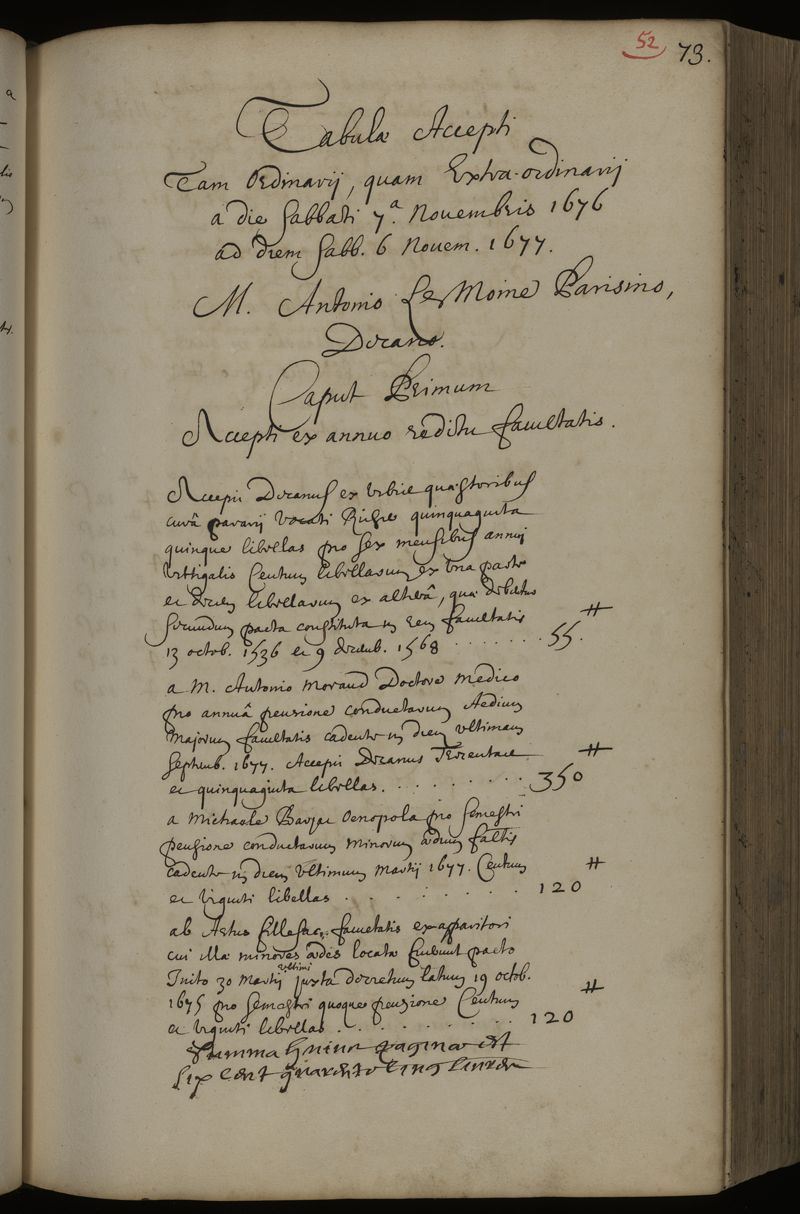 52 73.
Tabula Accepti
Tam Ordinarij, quam Extra-ordinarij
a die Sabbati 7ª. Novembris 1676
ad diem Sabb. 6 Novem. 1677.
M. Antonio Le Moine Parisino,
Decano.
Caput Primum
Accepti ex annuo reditu facultatis.
Accepit Decanus ex Urbis quæstoribus
curâ pararij vocati Riche quinquaginta
quinque libellas pro sex mensibus annui
vectigalis Centum libellarum ex una parte
et decem libellarum ex alterâ, quæ debetur
secundum pacta constituta in rem facultatis
13 octob. 1536 et 9 decemb. 1568 . . . . . . . 55. ₶
a M. Antonio Morand Doctore Medico
pro annuâ pensione conductarum Aedium
Majorum facultatis cadente in diem ultimam
Septemb. 1677. Accepit Decanus Trecentas
et quinquaginta libellas. . . . . . . . . 350 ₶
a Michaele Barjac Oenopola pro semestri
pensione conductarum minorum ædium
cadente in diem ultimum Martij 1677. Centum
et viginti libellas . . . . . . . . 120 ₶
ab facultatis exapparitori
cui illæ minores ædes locatæ fuerunt pacto
Inito 30 Martij ultimi juxta decretum latum 19 octob.
1675 pro semestri quoque pensione Centum
et viginti libellas . . . . . . . . 120 ₶
Summa huius paginæ est
six cent quarente cinq livres